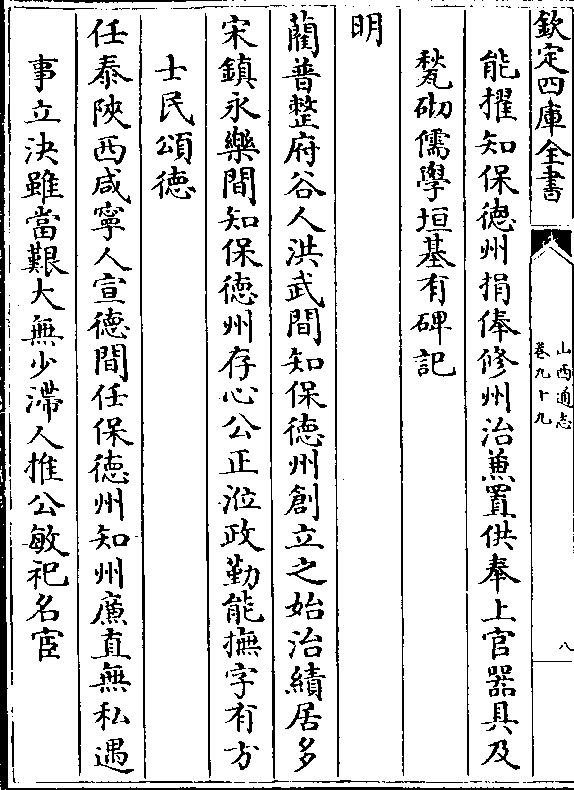 欽定四庫全書
山西通志
卷九十九
八
能擢知保徳州捐俸修州治蕭置供奉上官器具及
甃砌儒學垣基有碑記
明
藺普整府谷人洪武間知保徳州創立之始治績居多
宋鎮永樂間知保徳州存心公正涖政勤能撫字有方
士民頌徳
任泰陜西咸寧人宣徳間任保徳州知州廉直無私遇
事立決雖當艱大無少滯人推公敏祀名宦